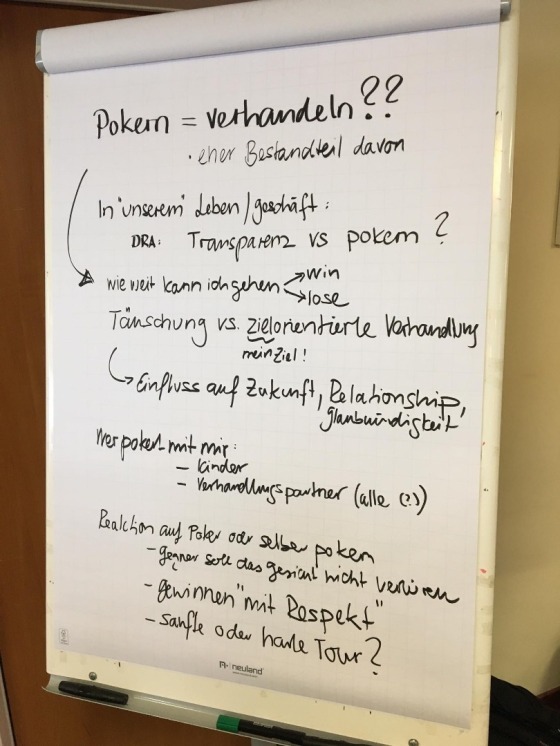 Pokern = verhandeln??
· eher Bestandteil davon
In "unserem" Leben/geschäft:
DRA: Transparenz vs pokern ?
wie weit kann ich gehen → win
→ lose
Täuschung vs. zielorientierte Verhandlung
mein Ziel!
Einfluss auf Zukunft, Relationship,
glaubwürdigkeit
Wer pokert mit mir:
- Kinder
- Verhandlungspartner (alle (?))
Reaktion auf Poker oder selber pokern
- gegner soll das gesicht nicht verlieren
- gewinnen "mit Respekt"
- sanfte oder harte Tour?
neuland